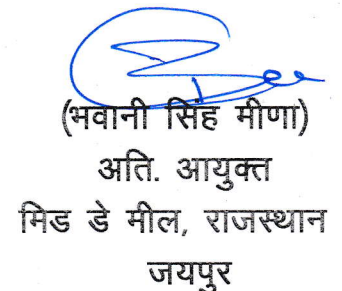 (भवानी सिंह मीणा)
अति. आयुक्त
मिड डे मील, राजस्थान
जयपुर